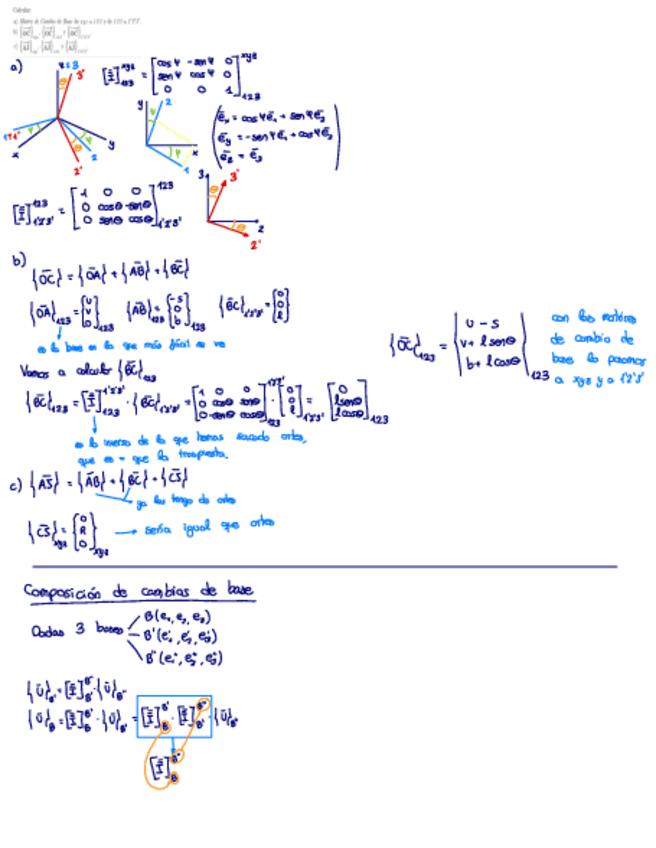 Calcular:
a) Matriz de Cambio de Base de xyz a 123 y de 123 a 1'2'3'.
b) {OC}xyz, {OC}123 y {OC}1'2'3'
c) {AS}xyz, {AS}123 y {AS}1'2'3'
a)
z≡3
3'
θ
1≡1'
x
ψ
y
2
2'
[Ī]^xyz_123 = [cos ψ -sen ψ 0; sen ψ cos ψ 0; 0 0 1]^xyz_123
y
2
x
1
ψ
ēx = cos ψ ē1 + sen ψ ē2
ēy = -sen ψ ē1 + cos ψ ē2
ēz = ē3
[Ī]^123_1'2'3' = [1 0 0; 0 cosθ -senθ; 0 senθ cosθ]^123_1'2'3'
3
3'
θ
2
2'
b)
{OC} = {OA} + {AB} + {BC}
{OA}123 = {u v 0}123 {AB}123 = {-s 0 b}123 {BC}1'2'3' = {0 0 l}
es la base en la que más fácil se ve
Vamos a calcular {BC}123
{BC}123 = [Ī]^1'2'3'_123 · {BC}1'2'3' = [1 0 0; 0 cosθ senθ; 0 -senθ cosθ]^1'2'3'_123 · [0 0 l]1'2'3' = [0 lsenθ lcosθ]123
es la inversa de la que hemos sacado antes,
que es = que la traspuesta.
{OC}123 = |u - s; v + l senθ; b + l cosθ|123
con las matrices
de cambio de
base lo pasamos
a xyz y a 1'2'3'
c) {AS} = {AB} + {BC} + {CS}
ya las tengo de antes
{CS}xyz = {0 R 0}xyz → sería igual que antes
Composición de cambios de base
Dadas 3 bases
B(e1, e2, e3)
B'(e1', e2', e3')
B''(e1'', e2'', e3'')
{Ū}B' = [Ī]^B''_B' · {Ū}B''
{Ū}B = [Ī]^B'_B · {Ū}B' = [Ī]^B'_B · [Ī]^B''_B' · {Ū}B''
[Ī]^B''_B